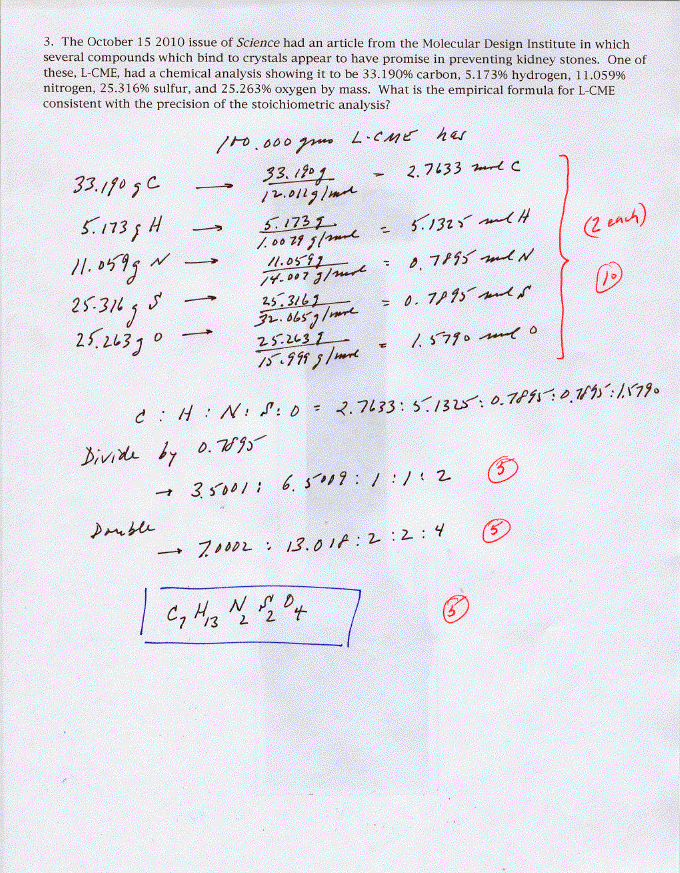 3. The October 15 2010 issue of Science had an article from the Molecular Design Institute in which
several compounds which bind to crystals appear to have promise in preventing kidney stones. One of
these, L-CME, had a chemical analysis showing it to be 33.190% carbon, 5.173% hydrogen, 11.059%
nitrogen, 25.316% sulfur, and 25.263% oxygen by mass. What is the empirical formula for L-CME
consistent with the precision of the stoichiometric analysis?
100.000 grams L-CME has
33.190 g C → 33.190 g / 12.011 g/mol = 2.7633 mol C
5.173 g H → 5.173 g / 1.0079 g/mol = 5.1325 mol H
(2 each)
11.059 g N → 11.059 g / 14.007 g/mol = 0.7895 mol N
10
25.316 g S → 25.316 g / 32.065 g/mol = 0.7895 mol S
25.263 g O → 25.263 g / 15.999 g/mol = 1.5790 mol O
C : H : N : S : O = 2.7633 : 5.1325 : 0.7895 : 0.7895 : 1.5790
Divide by 0.7895
→ 3.5001 : 6.5009 : 1 : 1 : 2 5
Double
→ 7.0002 : 13.018 : 2 : 2 : 4 5
C7 H13 N2 S2 O4 5